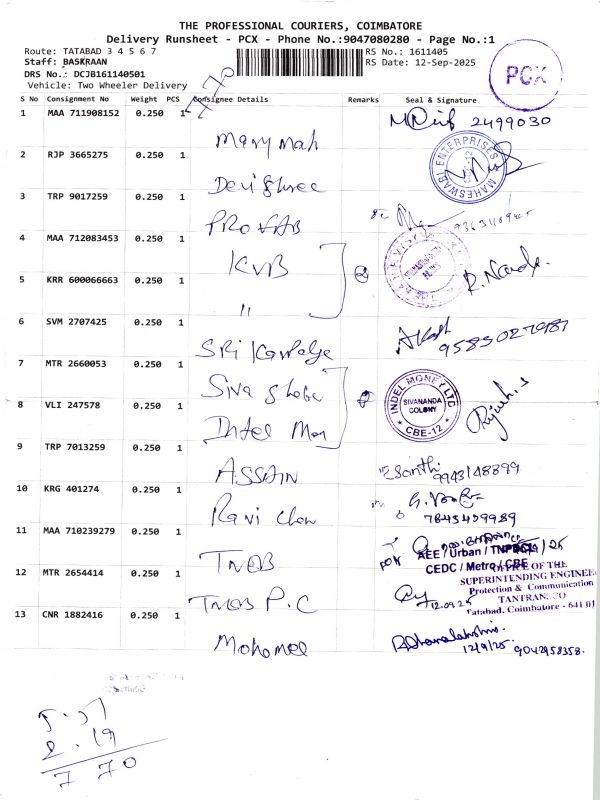 THE PROFESSIONAL COURIERS, COIMBATORE
Delivery Runsheet - PCX - Phone No.:9047080280 - Page No.:1
Route: TATABAD 3 4 5 6 7
RS No.: 1611405
Staff: BASKRAAN
RS Date: 12-Sep-2025
DRS No.: DCJB161140501
Vehicle: Two Wheeler Delivery
PCX
S No Consignment No Weight PCS Consignee Details Remarks Seal & Signature
1 MAA 711908152 0.250 1 2499030
Mary mah
2 RJP 3665275 0.250 1
MAHESWARI ENTERPRISES CBE-12
Devi Shree
3 TRP 9017259 0.250 1
PROFAB
4 MAA 712083453 0.250 1
KVB
5 KRR 600066663 0.250 1
"
6 SVM 2707425 0.250 1 Akash
9585027987
SRi
7 MTR 2660053 0.250 1
Siva
INDEL MONEY LTD
SIVANANDA
COLONY
* CBE-12 *
8 VLI 247578 0.250 1
Intel Mon
9 TRP 7013259 0.250 1
Santhi
9943148899
ASSAIN
10 KRG 401274 0.250 1
7845459989
Ravi Chan
11 MAA 710239279 0.250 1
AEE / Urban / TNPDCL
CEDC / Metro / CBE
TNEB
12 MTR 2654414 0.250 1
OFFICE OF THE
SUPERINTENDING ENGINEER
Protection & Communication
TANTRANSCO
Tatabad, Coimbatore - 641 01
12.09.25
TNEB P.C
13 CNR 1882416 0.250 1
R Dhanalakshmi.
12/9/25 9042958358.
Mohamed
5.51
2.19
7 70